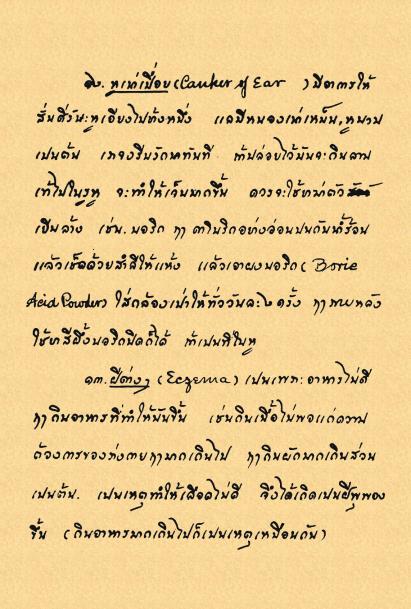 ๑๒. หูเน่าเปื่อย (Canker of Ear ) มีอาการให้
สั่นศีร์ษะหูเอียงไปทั้งหนึ่ง แลมีหนองเน่าเหม็น, หูบวม
เป็นต้น เราจงรีบรักษาทันที ถ้าปล่อยไว้มันจะกินลาม
เข้าไปในรูหู จะทำให้เจ็บมากขึ้น ควรจะใช้ยาฆ่าตัว
เป็นล้าง เช่น. บอริค ฤา คาโบริคอย่างอ่อนปนกับน้ำร้อน
แล้วเช็ดด้วยสำลีให้แห้ง แล้วเอาผงบอริค ( Boric
Acid Powder) ใส่กล้องเป่าให้ทั่ววันละ ๒ ครั้ง ฤาภายหลัง
ใช้ขี้ผึ้งบอริคปิดก็ได้ ถ้าเป็นที่ใบหู
๑๓. ฝีต่างๆ (Eczema) เป็นเพราะอาหารไม่ดี
ฤากินอาหารที่ทำให้มันขึ้น เช่นกินเนื้อไม่พอแก่ความ
ต้องการของร่างกายฤามากเกินไป ฤากินผักมากเกินส่วน
เป็นต้น. เป็นเหตุทำให้เลือดไม่ดี จึงได้เกิดเป็นฝีพุพอง
ขึ้น (กินอาหารมากเกินไปก็เป็นเหตุเหมือนกัน)